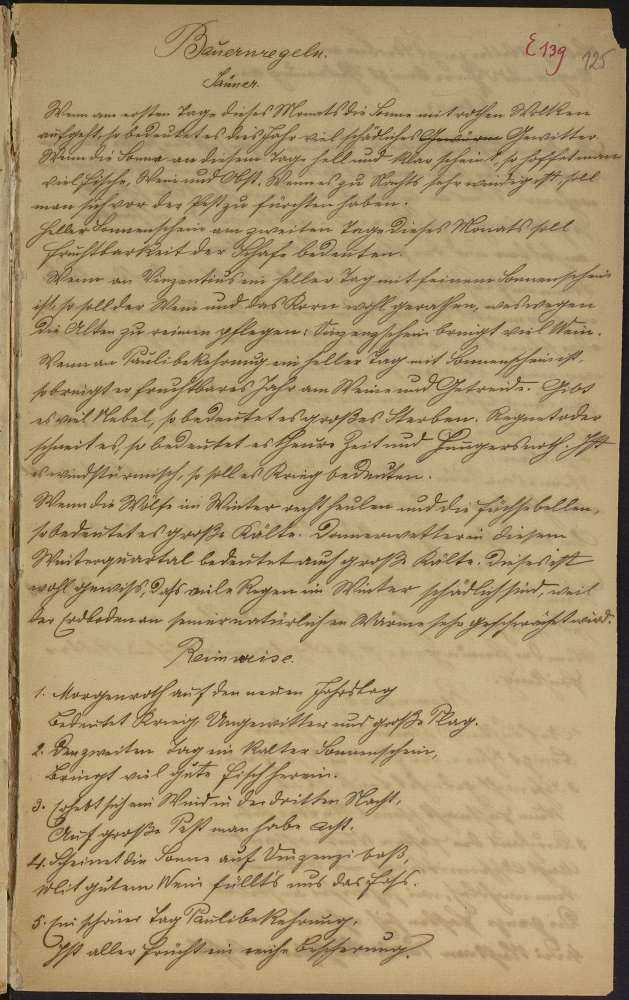 Bauernregeln.
E 139
125
Jänner.
Wenn am ersten Tage dieses Monats die Sonne mit rothen Wolken
aufgeht, so bedeutet es dies Jahr viel schädliches Gewitter.
Wenn die Sonne an diesem Tage hell und klar scheint, so hoffet man
viel Fische, Wein und Obst. Wenn es zu Nachts sehr windig ist, soll
man sich vor der Pest zu fürchten haben.
Heller Sonnenschein am zweiten Tage dieses Monats soll
Fruchtbarkeit der Schafe bedeuten.
Wenn an Vinzentius ein heller Tag mit seinem Sonnenschein
ist, so soll der Wein und das Korn wohl gerathen, weswegen
die Alten zu reimen pflegen: Vinzenzschein bringt viel Wein.
Wenn an Paulibekehrung ein heller Tag mit Sonnenschein ist,
so bringt er fruchtbares Jahr am Weine und Getreide. Gibt
es viel Nebel, so bedeutet es großes Sterben. Regnet oder
schneit es, so bedeutet es theure Zeit und Hungersnoth. Ist
es windstürmisch, so soll es Krieg bedeuten.
Wenn die Wölfe im Winter recht heulen und die Füchse bellen,
so bedeutet es große Kälte. Donnerwetter in diesem
Winterquartal bedeutet auch große Kälte. Dieses ist
wohl gewiss, dass viele Regen im Winter schädlich sind, weil
der Erdboden an seiner natürlichen Wärme sehr geschwächt wird.
Reimweise.
1. Morgenroth auf den neuen Jahrstag
Bedeutet Krieg Ungewitter und große Plag.
2. Den zweiten Tag ein kalter Sonnenschein,
Bringt viel gute Fisch herein.
3. Erhebt sich ein Wind in der dritten Nacht,
Auf große Pest man habe acht.
4. Scheinet die Sonne auf Vinzenzi baß,
Mit gutem Wein füllt's uns das Fass.
5. Ein schöner Tag Paulibekehrung,
Ist aller Frücht ein reiche Bescherung.